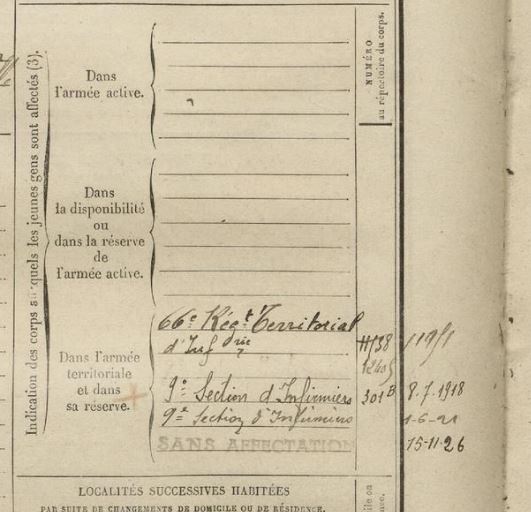 Indication des corps auxquels les jeunes gens sont affectés (3).
NUMÉRO
au répertoire du corps.
Dans
l'armée active.
Dans
la disponibilité
ou
dans la réserve
de
l'armée active.
Dans l'armée
territoriale
et dans
sa réserve.
66e Régt Territorial
d'Inf rie
9e Section d'Infirmiers 301 B 8.7.1918
9e Section d'Infirmiers 1-6-21
SANS AFFECTATION 15-11-26
LOCALITÉS SUCCESSIVES HABITÉES
PAR SUITE DE CHANGEMENTS DE DOMICILE OU DE RÉSIDENCE.